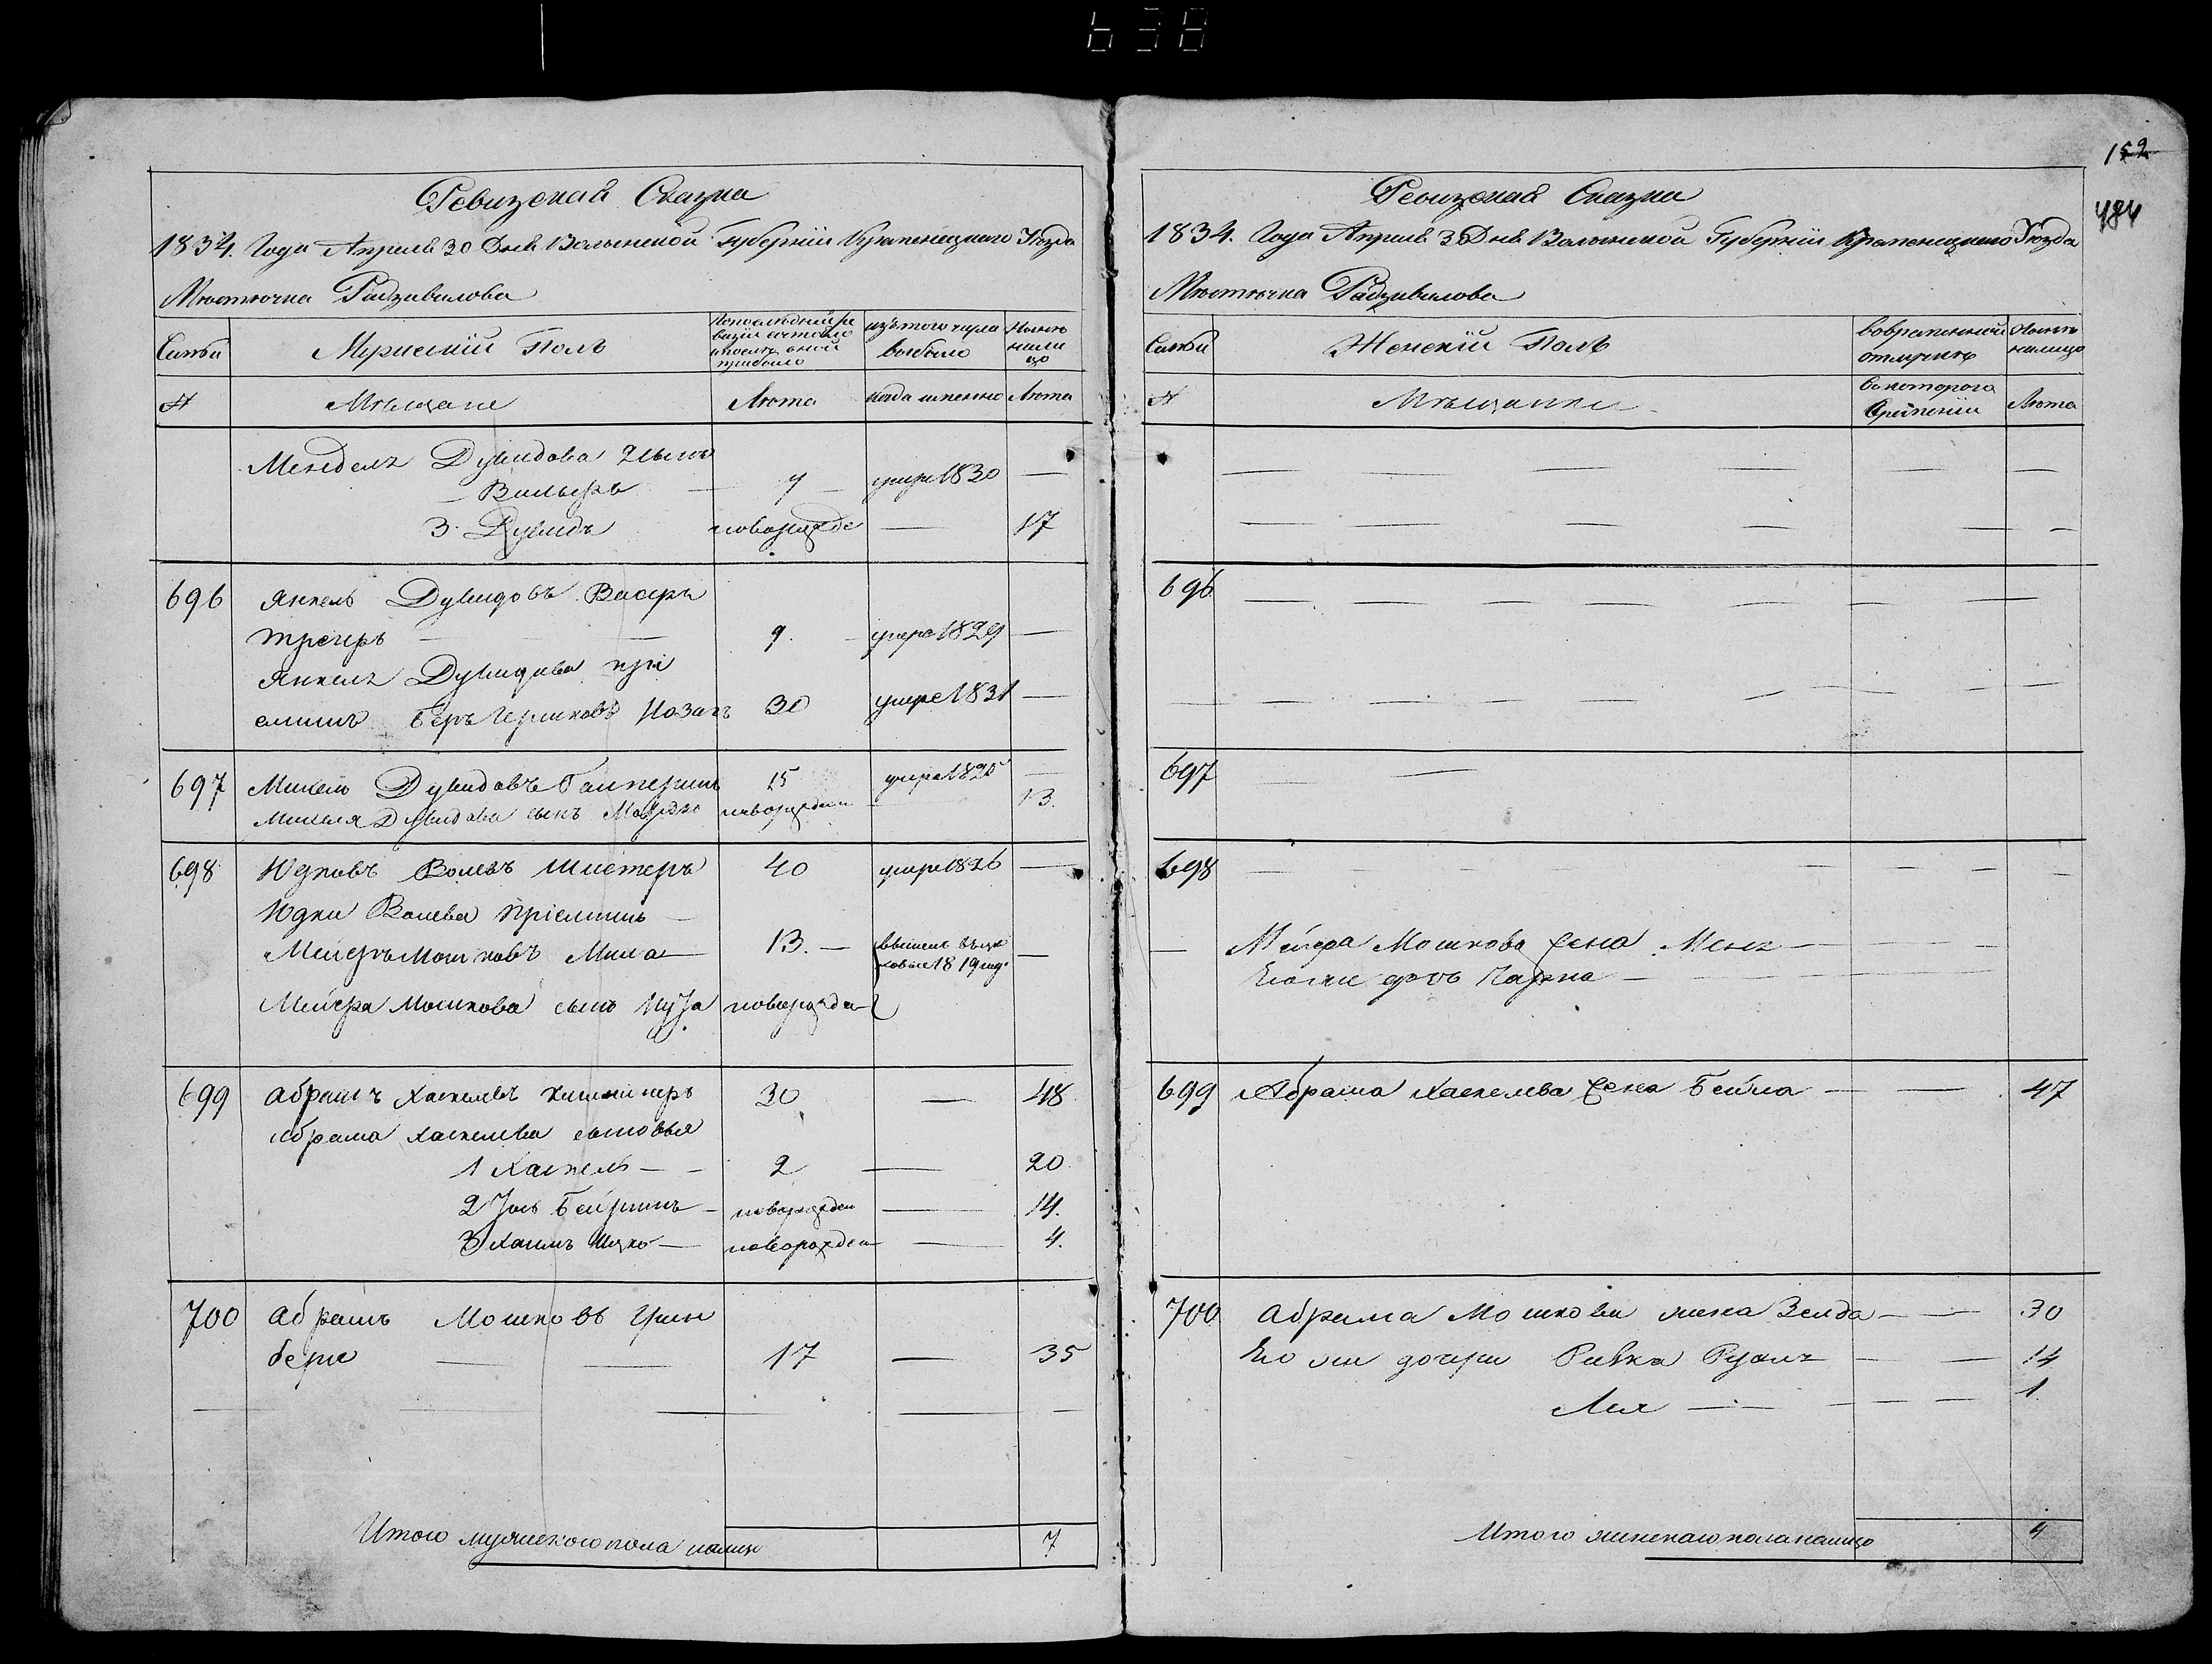 638
152
484
Ревизская Сказка
1834. Года Апреля 30 Дня Волынской Губернии Кременецкаго Уезда
Местечка Радзивилова
Семьи
Мужеский Полъ
По последней ревизии состояло и после оной прибыло
изъ того числа выбыло
Ныне на лицо
№
Мещане
Лета
когда именно
Лета
Мендель Дувидова 2 сынъ
Вольфъ — 7 — умре 1830 —
3. Дувидъ новорожде — 17
696 Янкель Дувидовъ Васеръ
трегеръ — — 9. умре 1829 —
Янкеля Дувидова прі
емышъ Беръ Гершковъ 30 умре 1831 —
697 Микель Дувидовъ Галперинъ 15 умре 1825 —
Микеля Дувидова сынъ Мордко новорожден — 13.
698 Юдковъ Волевъ Шистеръ 40 умре 1826 —
Юдки Волева пріемышъ —
Мейеръ Мошковъ 13. — 1819 году —
Мейера Мошкова сынъ новорожден
699 Абрамъ Хаскелевъ 30 — 48
Абрама Хаскелева сыновья
1 Хаскель — — 2 — 20
2 Бейришъ — новорожден — 14.
3 Хаимъ Ицко — новорожден — 4.
700 Абрамъ Мошковъ Грин
бергъ — — 17 — 35
Итого мужескаго пола налицо 7
Ревизская Сказка
1834. Года Апреля 30 Дня Волынской Губернии Кременецкаго Уезда
Местечка Радзивилова
Семьи
Женский Полъ
во временной отлучке
Ныне на лицо
№
Мещанки
съ котораго времени
Лета
696
697
698
— Мейера Мошкова жена —
Его же дочь Чарна —
699 Абрама Хаскелева жена Бейла — — 47
700 Абрама Мошкова жена Зелда — — 30
Его же дочери Ривка Рухль — — 14
Лея — — — — 1.
Итого женскаго пола налицо 4